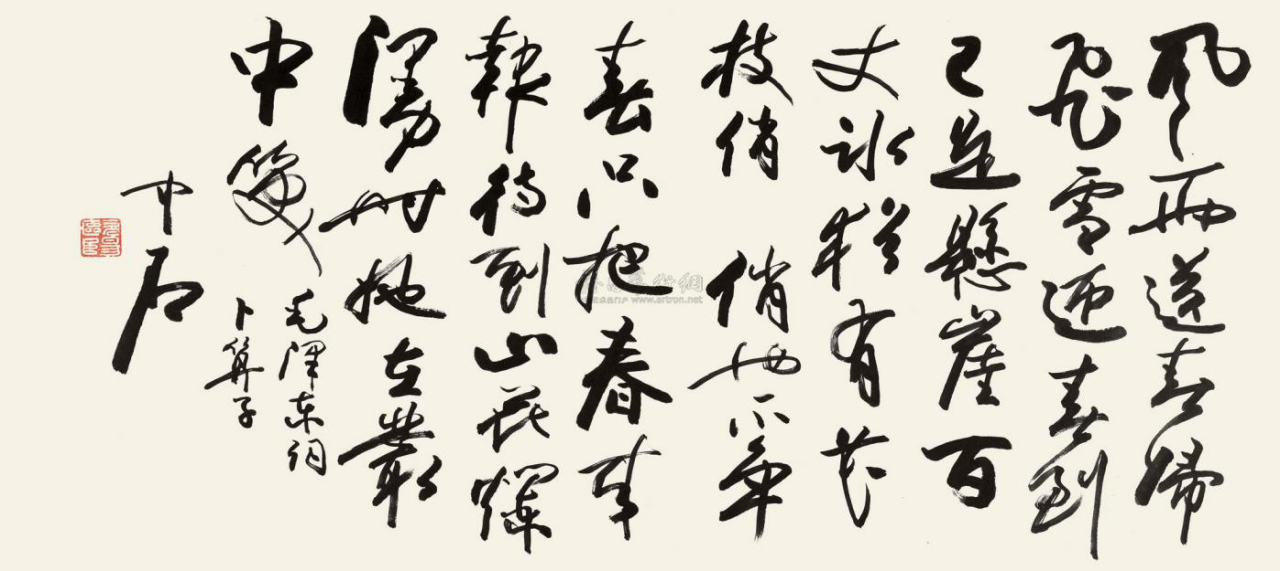 风雨送春歸
飛雪迎春到
已是懸崖百
丈冰猶有花
枝俏 俏也不争
春只把春来
報待到山花爛
漫时她在叢
中笑
毛泽东词
卜算子
中石
www.artron.net